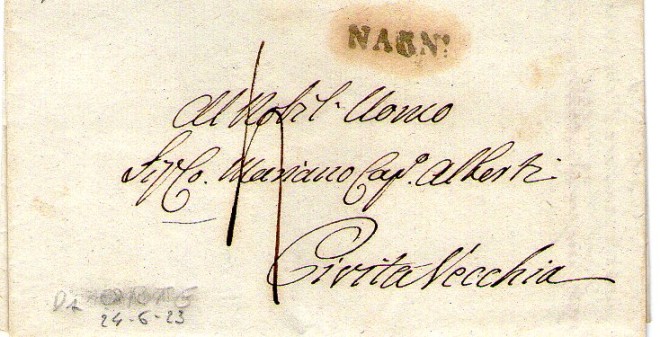 NARNI
Al Nobil Uomo
Sigr Co. Mariano Capo. Alberti
Civita Vecchia
Da
24-6-23